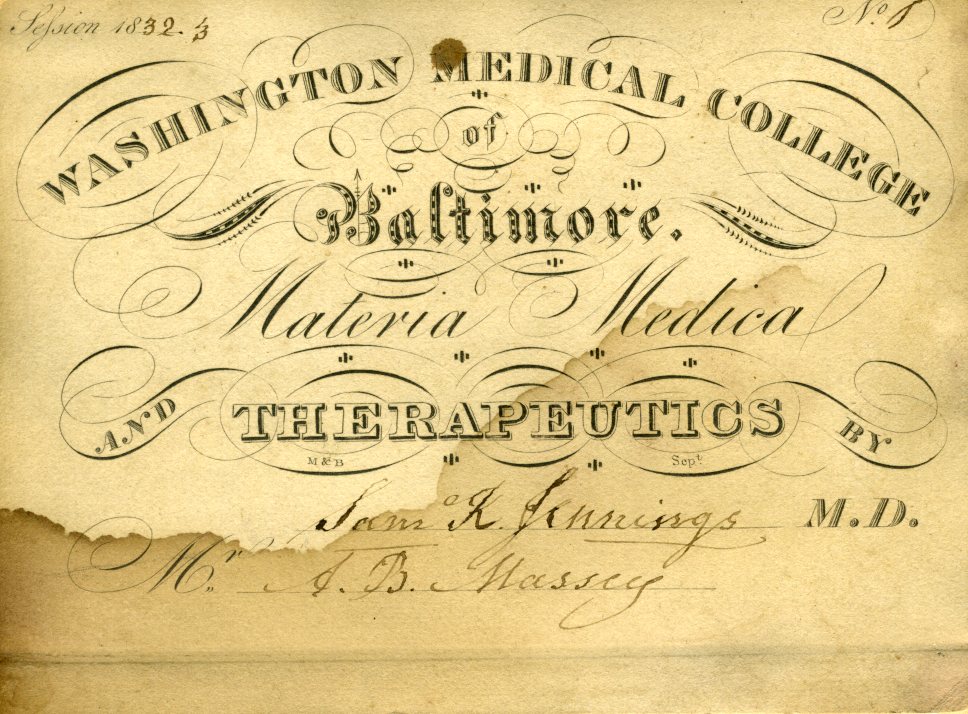 Session 1832.3
No. 1
WASHINGTON MEDICAL COLLEGE
of
Baltimore.
Materia Medica
AND THERAPEUTICS BY
M & B Scpt
Sam K. Jennings M.D.
Mr. A. B. Massey